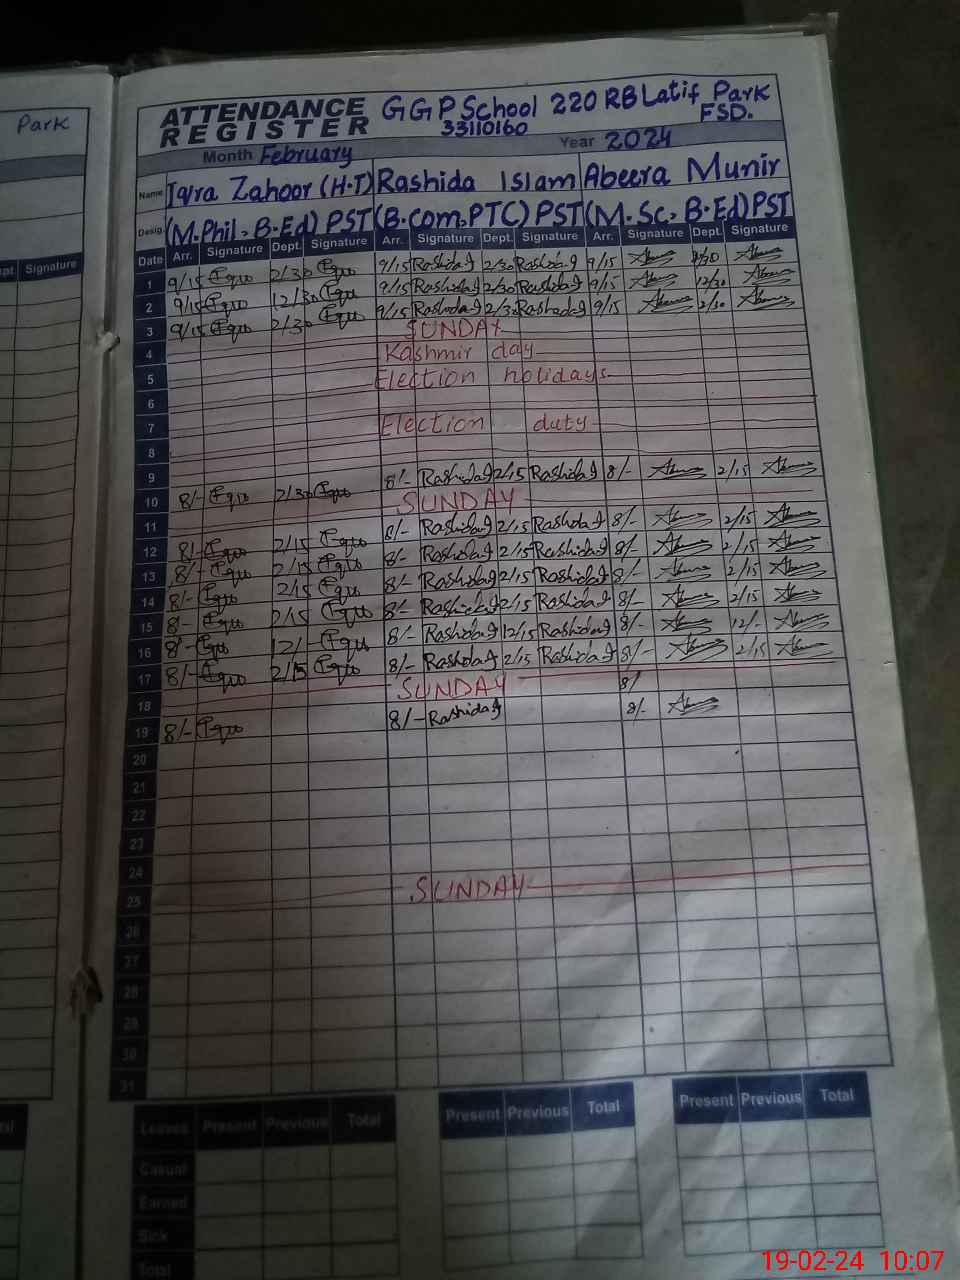 Park
ATTENDANCE REGISTER GGP School 220 RB Latif Park FSD.
33110160
Month February Year 2024
Name Iqra Zahoor (H.T) Rashida Islam Abeera Munir
Desig. (M.Phil, B.Ed) PST (B.com, PTC) PST (M.Sc, B.Ed) PST
Signature
Date Arr. Signature Dept. Signature Arr. Signature Dept. Signature Arr. Signature Dept. Signature
1 9/15 2/30 9/15 Rashida 2/30 Rashida 9/15
2 9/15 12/30 9/15 Rashida Rashida 9/15 12/30
3 9/15 2/30 9/15 Rashida 2/30 Rashida 9/15 2/30
SUNDAY
4 Kashmir day
5 Election holidays
6
7 Election duty
8
9 8/- Rashida 2/15 Rashida 8/- 2/15
10 8/- 2/30 SUNDAY
11 8/- Rashida 2/15 Rashida 8/- 2/15
12 8/- 2/15 8/- Rashida 2/15 Rashida 8/- 2/15
13 8/- 2/15 8/- Rashida 2/15 Rashida 8/- 2/15
14 8/- 2/15 8/- Rashida 2/15 Rashida 8/- 2/15
15 8/- 2/15 8/- Rashida 12/15 Rashida 8/- 12/-
16 8/- 12/- 8/- Rashida 2/15 Rashida 8/- 2/15
17 8/- 2/15 SUNDAY 8/
18 8/- Rashida 8/-
19 8/-
20
21
22
23
24
25 SUNDAY
26
27
28
29
30
31
Leaves Present Previous Total Present Previous Total Present Previous Total
Casual
Earned
Sick
Total
19-02-24 10:07